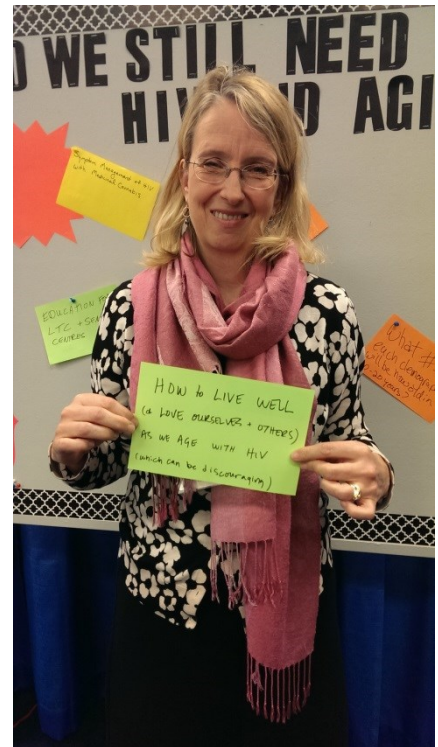 WE STILL NEED
HIV AGI
Symptom Management of HIV
with Medicinal Cannabis
EDUCATION
LTC +
CENTRES
What #
each
will be
20 years
HOW to LIVE WELL
(& LOVE OURSELVES + OTHERS)
AS WE AGE WITH HIV
(which can be discouraging)